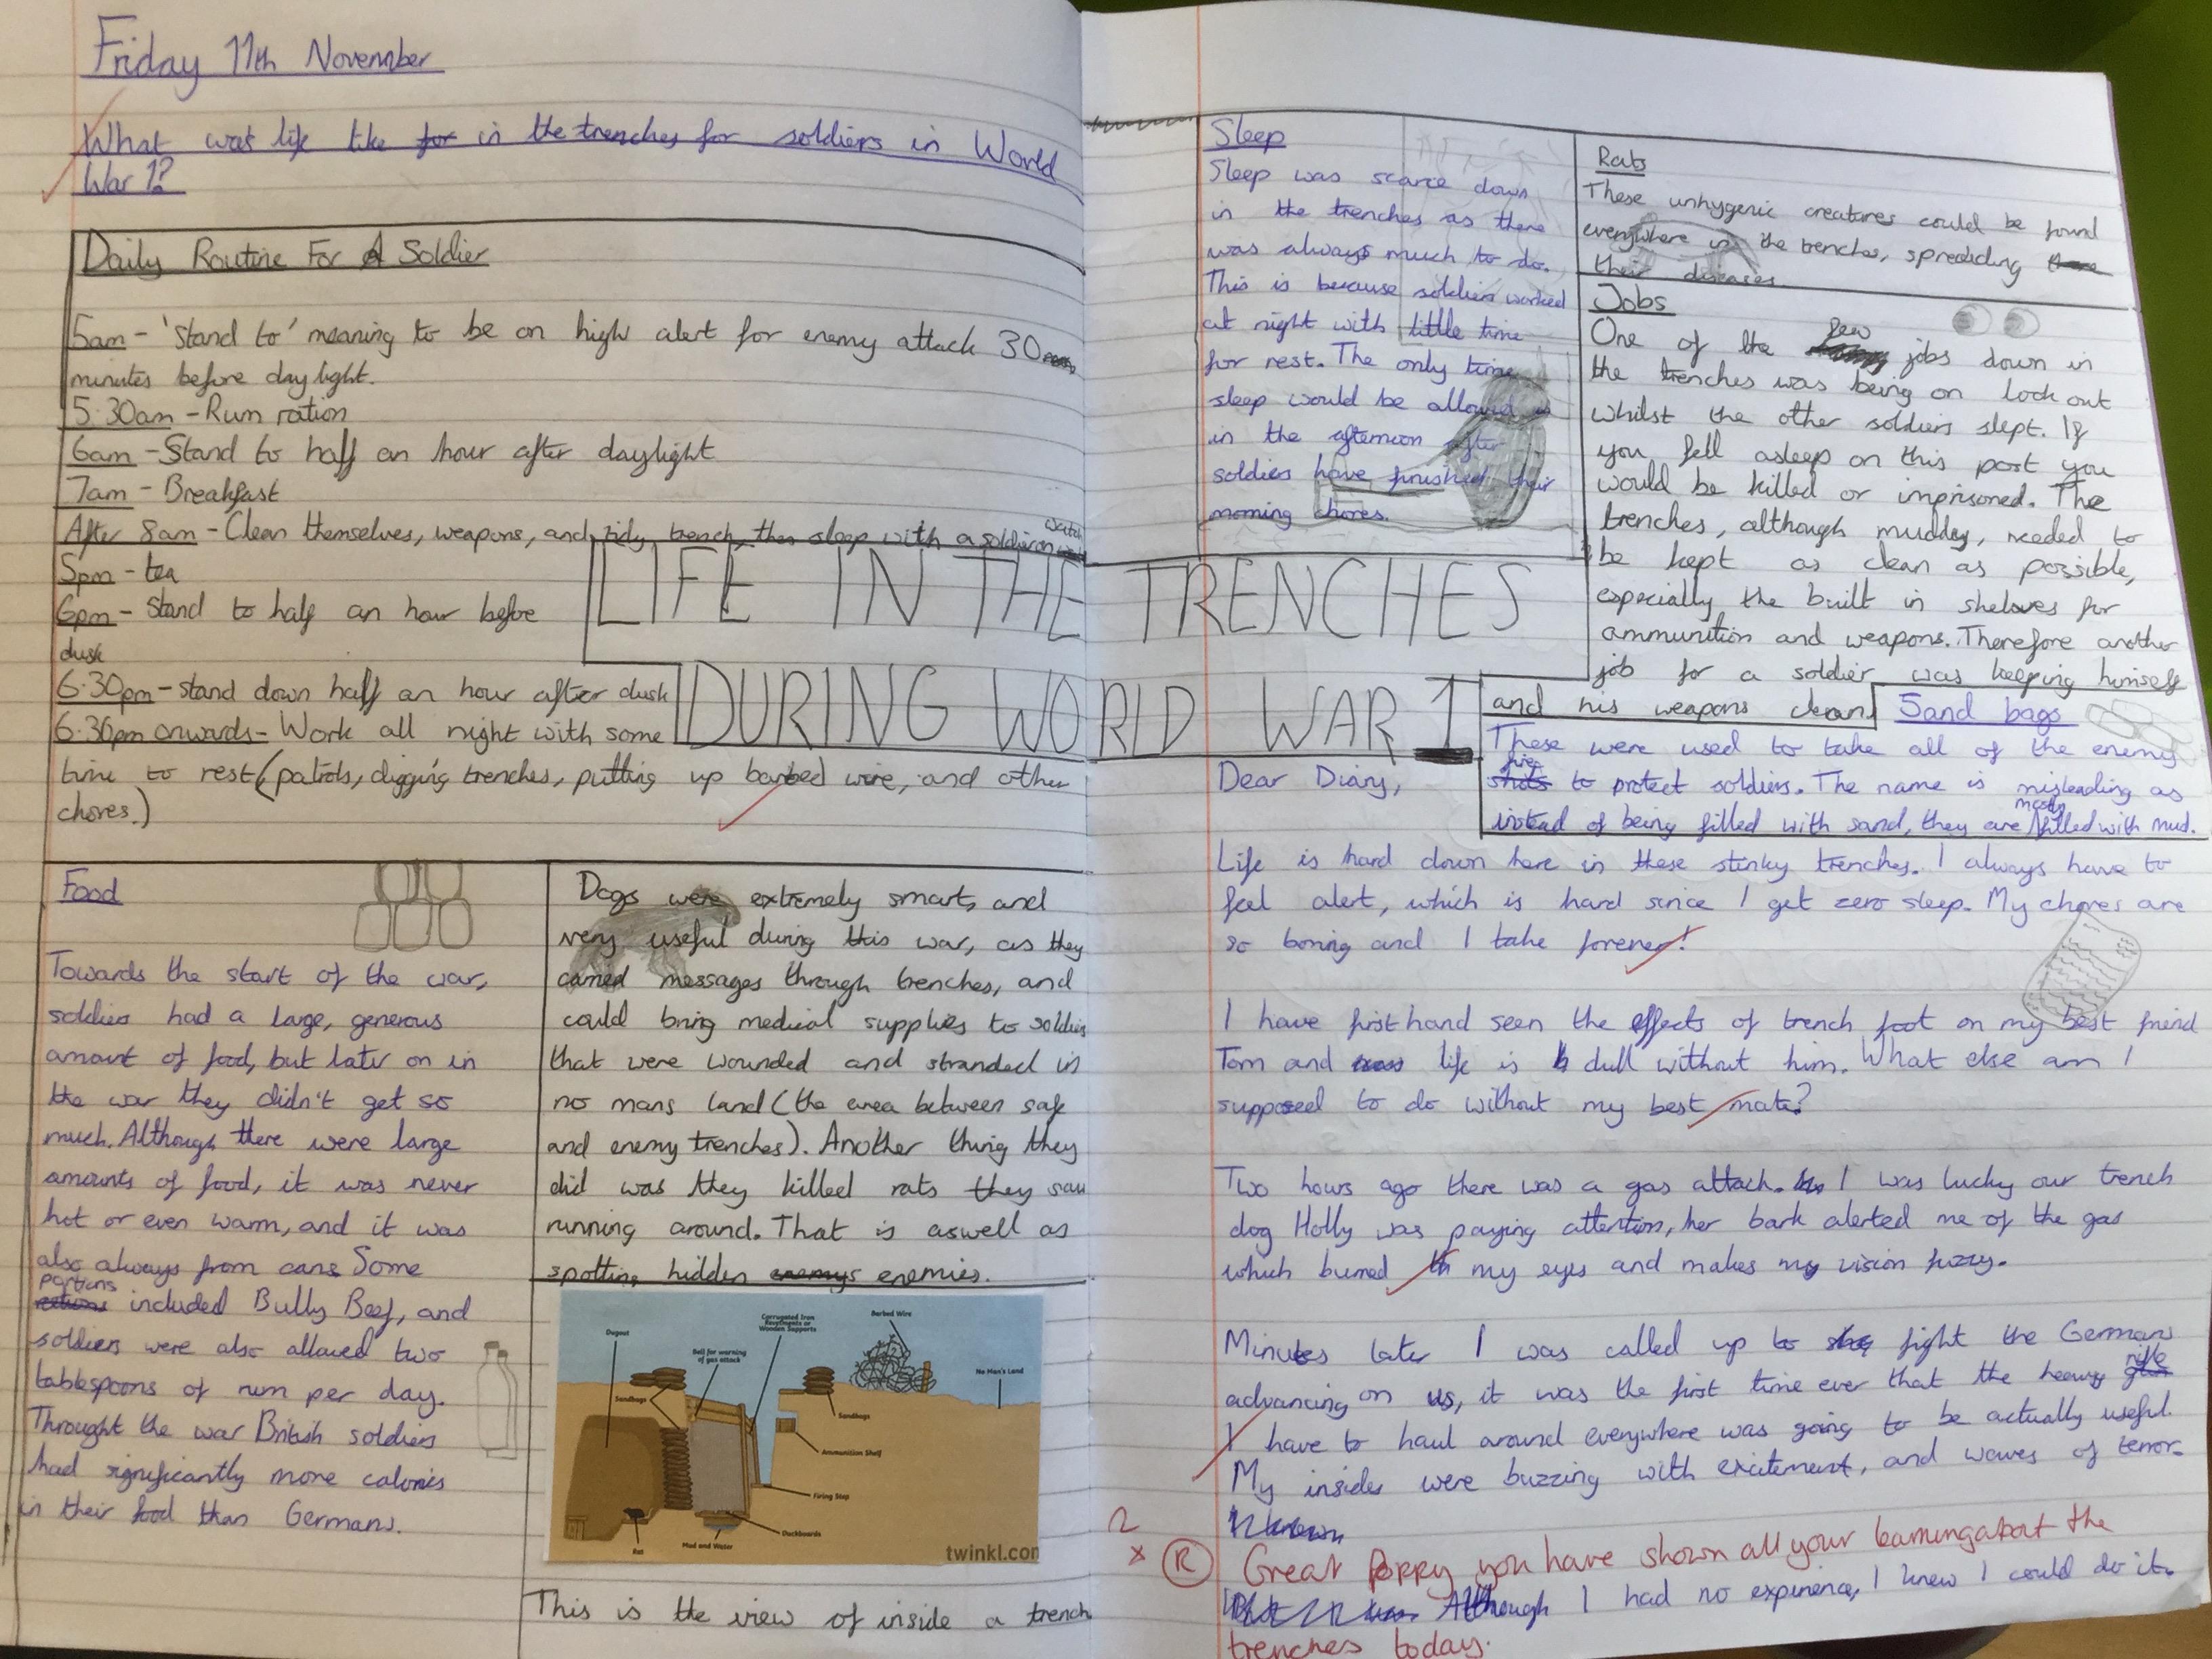 Friday 11th November
What was life like for in the trenches for soldiers in World
War 1?
Daily Routine For A Soldier
5am - 'Stand to' meaning to be on high alert for enemy attack 30
minutes before daylight.
5.30am - Rum ration
6am - Stand to half an hour after daylight
7am - Breakfast
After 8am - Clean themselves, weapons, and tidy trench, then sleep with a soldier on watch
5pm - tea
6pm - Stand to half an hour before
dusk
6.30pm - stand down half an hour after dusk
6.30pm onwards - Work all night with some
time to rest (patrols, digging trenches, putting up barbed wire, and other
chores.)
LIFE IN THE TRENCHES
DURING WORLD WAR 1
Food
Towards the start of the war,
soldiers had a large, generous
amount of food, but later on in
the war they didn't get so
much. Although there were large
amounts of food, it was never
hot or even warm, and it was
also always from cans. Some
portions
included Bully Beef, and
soldiers were also allowed two
tablespoons of rum per day.
Throught the war British soldiers
had significantly more calories
in their food than Germans.
Dogs were extremely smart, and
very useful during this war, as they
carried messages through trenches, and
could bring medical supplies to soldiers
that were wounded and stranded in
no mans land (the area between safe
and enemy trenches). Another thing they
did was they killed rats they saw
running around. That is aswell as
spotting hidden enemys enemies.
Dugout
Corrugated Iron
Revetments or
Wooden Supports
Barbed Wire
Bell for warning
of gas attack
No Man's Land
Sandbags
Sandbags
Ammunition Shelf
Firing Step
Duckboards
Rat
Mud and Water
twinkl.com
This is the view of inside a trench
Sleep
Sleep was scarce down
in the trenches as there
was always much to do.
This is because soldiers worked
at night with little time
for rest. The only time
sleep would be allowed is
in the afternoon after
soldiers have finished their
morning chores.
Rats
These unhygenic creatures could be found
everywhere in the trenches, spreading there
their diseases.
Jobs
few
One of the jobs down in
the trenches was being on look out
whilst the other soldiers slept. If
you fell asleep on this post you
would be killed or imprisoned. The
trenches, although muddy, needed to
be kept as clean as possible,
especially the built in sheloves for
ammunition and weapons. Therefore another
job for a soldier was keeping himself
and his weapons clean.
Sand bags
These were used to take all of the enemy
fire
shots to protect soldiers. The name is misleading as
mostly
instead of being filled with sand, they are filled with mud.
Dear Diary,
Life is hard down here in these stinky trenches. I always have to
feel alert, which is hard since I get zero sleep. My chores are
so boring and I take forever!
I have first hand seen the effects of trench foot on my best friend
Tom and life is dull without him. What else am I
supposed to do without my best mate?
Two hours ago there was a gas attack. I was lucky our trench
dog Holly was paying attention, her bark alerted me of the gas
which burned my eyes and makes my vision fuzzy.
Minutes later I was called up to fight the Germans
rifle
advancing on us, it was the first time ever that the heavy
I have to haul around everywhere was going to be actually useful.
My insides were buzzing with excitement, and waves of terror.
R Great Poppy you have shown all your learning about the
Although I had no experience, I knew I could do it.
trenches today.